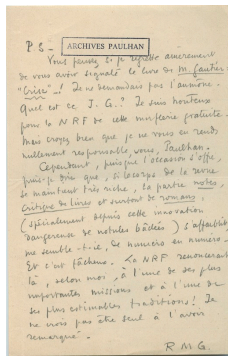 P.S. –
ARCHIVES PAULHAN
Vous pensez si je regrette amèrement
de vous avoir signalé le livre de M. Gautier
"Crise"..! Je ne demandais pas l'aumône.
Quel est ce J. G.? Je suis honteux
pour la NRF de cette muflerie gratuite.
Mais croyez bien que je ne vous en rends
nullement responsable, vous, Paulhan.
Cependant, puisque l'occasion s'offre,
puis-je dire que, si le corps de la revue
se maintient très riche, la partie notes,
critique de livres et surtout de romans,
(spécialement depuis cette innovation
dangereuse de notules bâclées) s'affaiblit,
me semble-t-il, de numéro en numéro.
Et c'est fâcheux. La NRF renoncerait
là, selon moi, à l'une de ses plus
importantes missions et à l'une de
ses plus estimables traditions! Je
ne dois pas être seul à l'avoir
remarqué.
R.M.G.